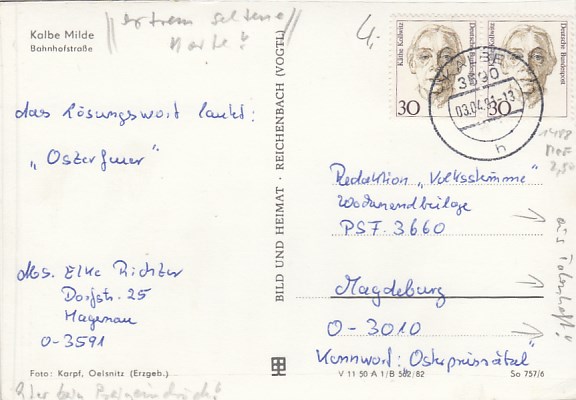 Kalbe Milde
Bahnhofstraße
"extrem seltene
Karte!
4,-
das Lösungswort lautet:
„Osterfeuer“
Abs. Elke Richter
Dorfstr. 25
Hagenau
O-3591
Foto: Karpf, Oelsnitz (Erzgeb.)
BILD UND HEIMAT · REICHENBACH (VOGTL)
Käthe Kollwitz
Deutsche Bundespost
30
Käthe Kollwitz
Deutsche Bundespost
30
KALBE
3590
03.04.91-13
h
1488
MeF
2,50
Redaktion „Volksstimme“
Wochenendbeilage
PSF. 3660
Magdeburg
O-3010
Kennwort: „Osterpreisrätsel“
V 11 50 A 1/B 582/82
So 757/6